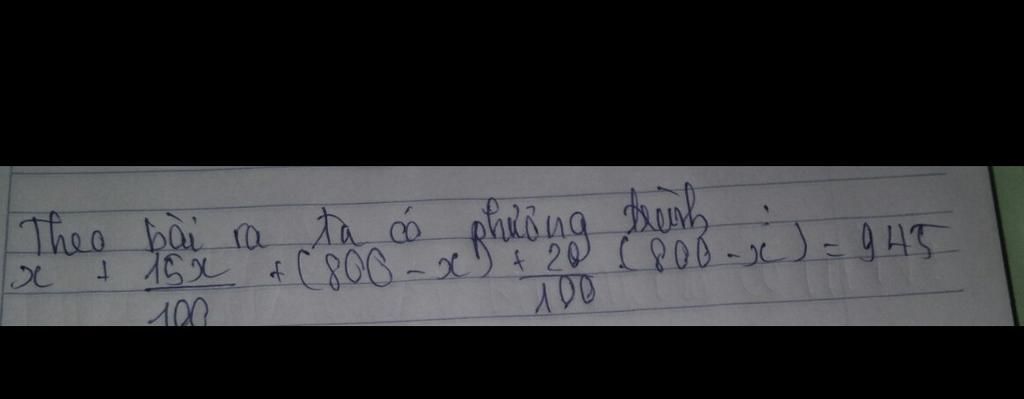 Theo bài ra ta có phương trình :
x + 15x/100 + (800 - x) + 20/100 . (800 - x) = 945